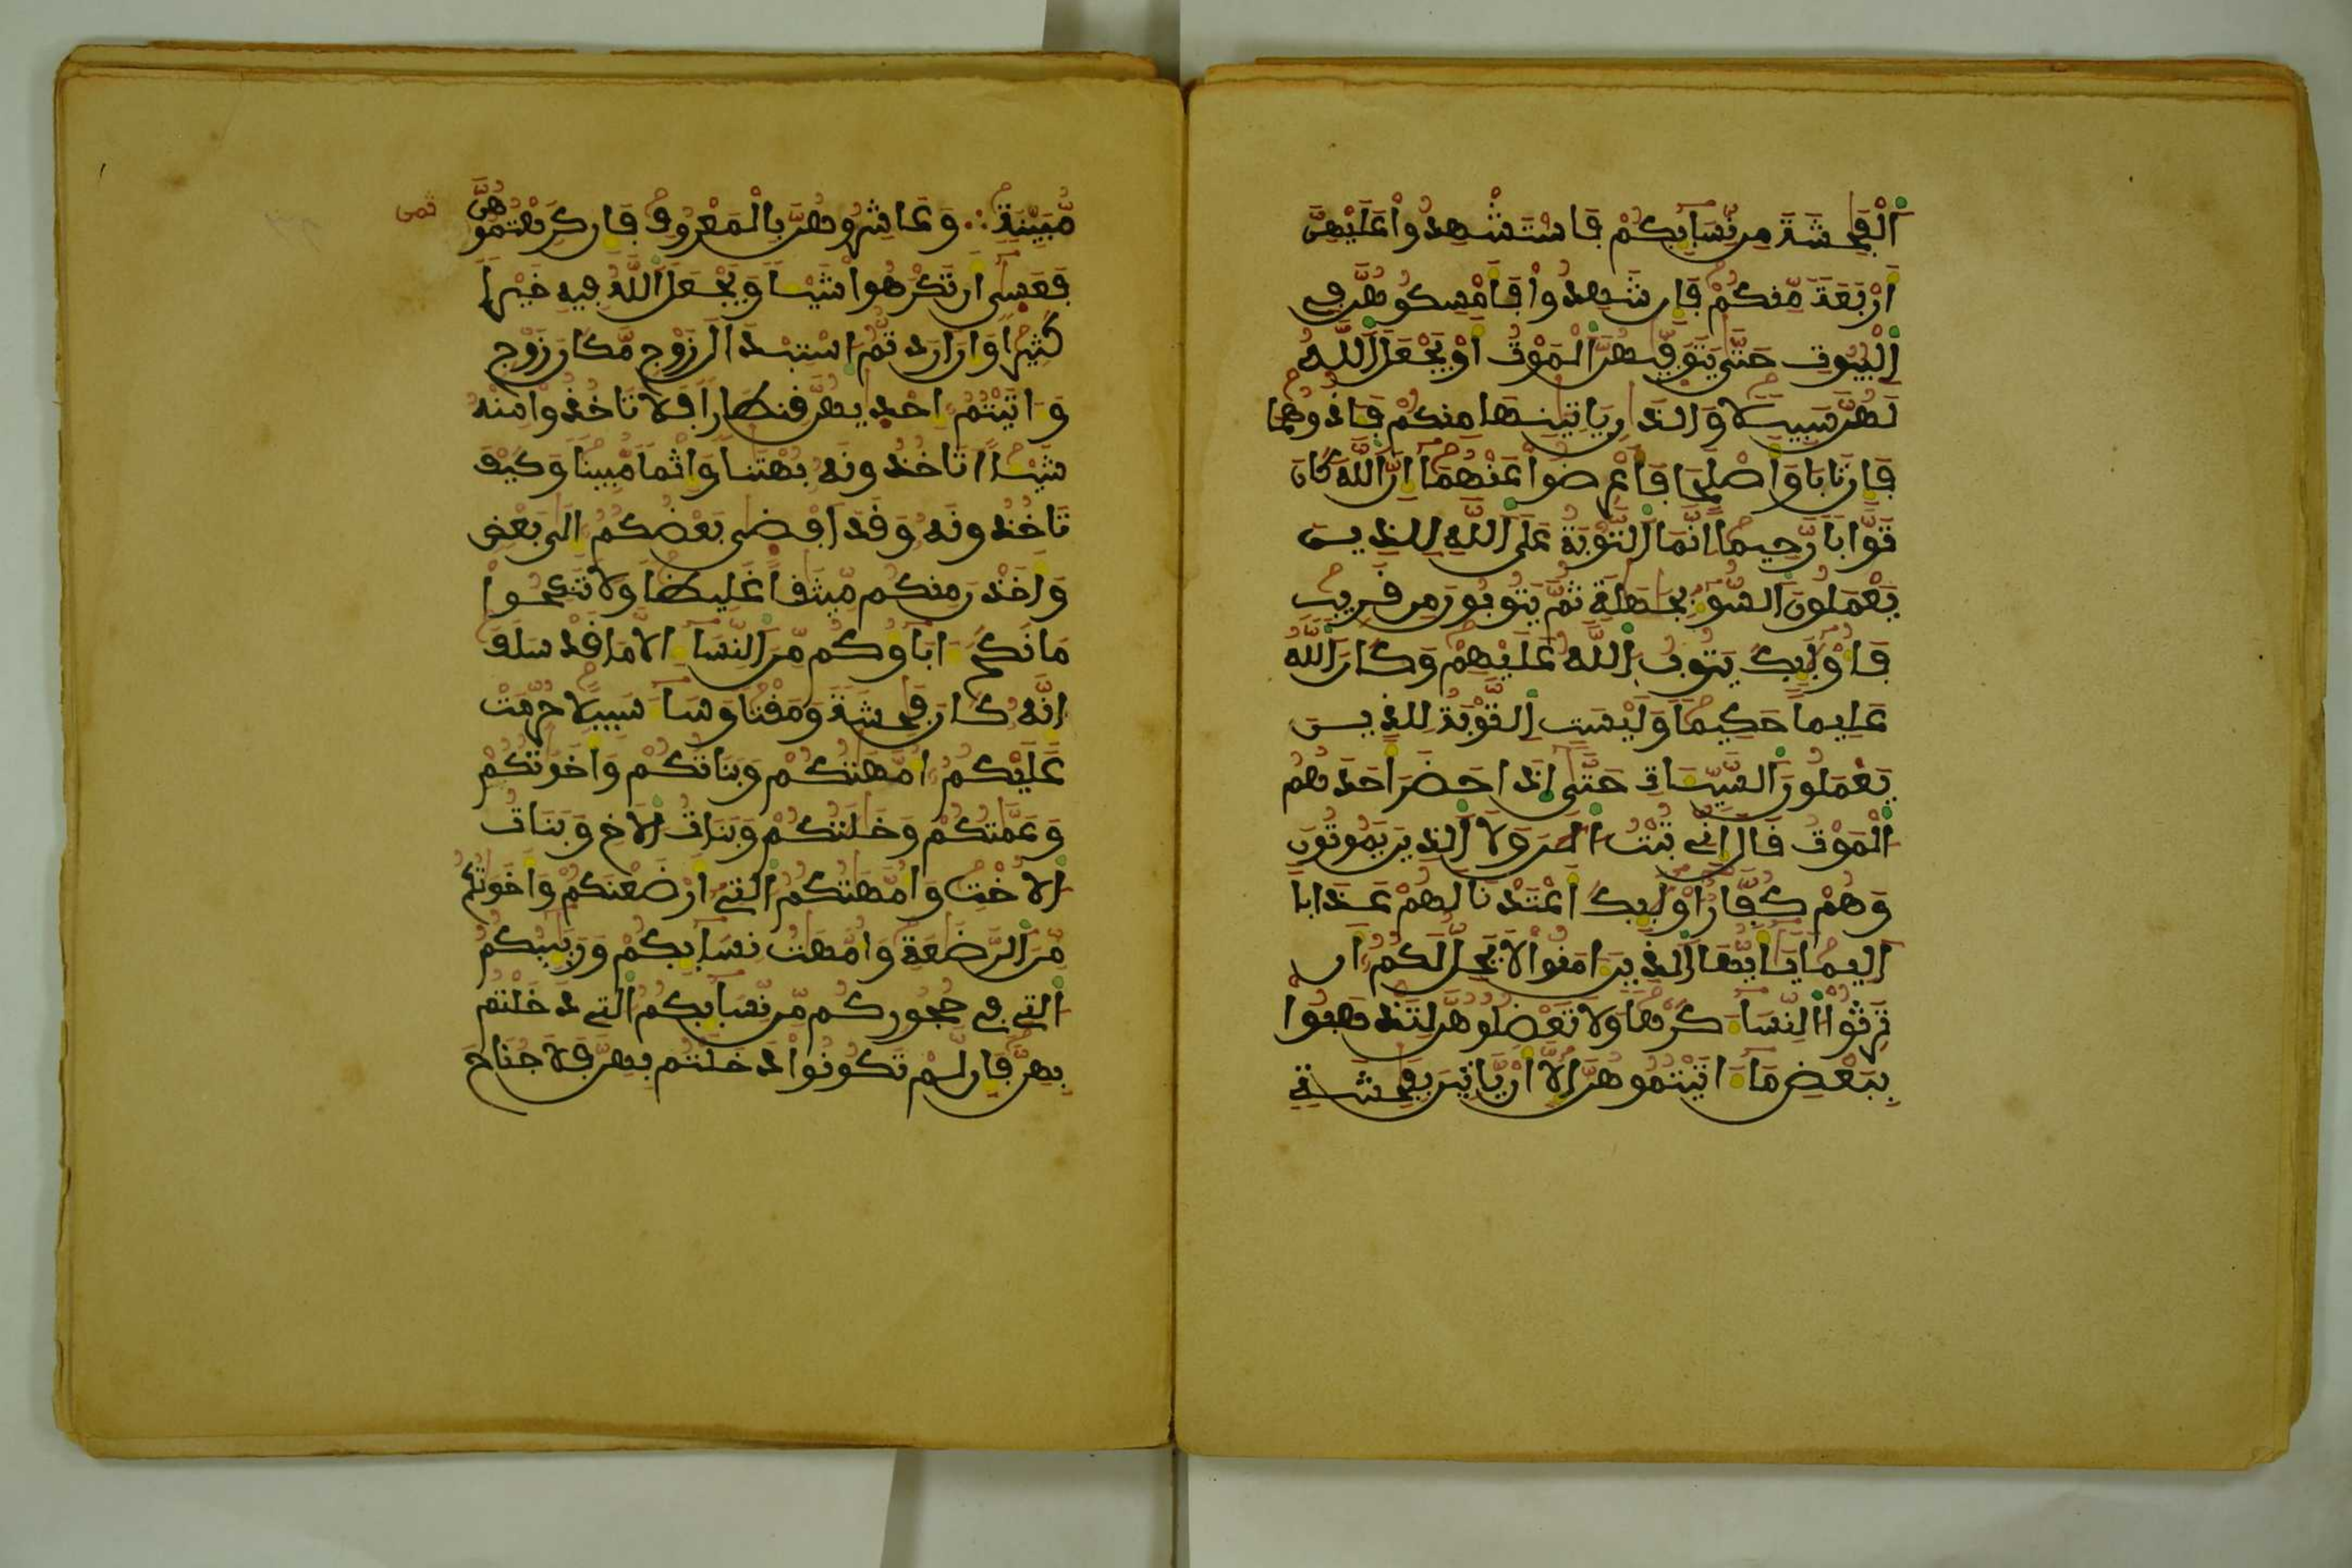 اَلْفَٰحِشَةَ مِن نِّسَآئِكُمْ فَاسْتَشْهِدُواْ عَلَيْهِنَّ
أَرْبَعَةَ مِّنكُمْ فَإِن شَهِدُواْ فَأَمْسِكُوهُنَّ فِے
اِلْبُيُوتِ حَتَّىٰ يَتَوَفّٰيهُنَّ اَلْمَوْتُ أَوْ يَجْعَلَ اَللَّهُ
لَهُنَّ سَبِيلًا وَالذَٰنِ يَاتِيَٰنِهَا مِنكُمْ فَـَٔاذُوهُمَا
فَإِن تَابَا وَأَصْلَحَا فَأَعْرِضُواْ عَنْهُمَا إِنَّ اَللَّهَ كَانَ
تَوَّابًا رَّحِيمًا إِنَّمَا اَلتَّوْبَةُ عَلَى اَللَّهِ لِلذِينَ
يَعْمَلُونَ اَلسُّوٓءَ بِجَهَٰلَةٍ ثُمَّ يَتُوبُونَ مِن قَرِيبٍ
فَأُوْلَٰٓئِكَ يَتُوبُ اُللَّهُ عَلَيْهِمْ وَكَانَ اَللَّهُ
عَلِيمًا حَكِيمًا وَلَيْسَتِ اِلتَّوْبَةُ لِلذِينَ
يَعْمَلُونَ اَلسَّيِّـَٔاتِ حَتَّىٰ إِذَا حَضَرَ أَحَدَهُمُ
اُلْمَوْتُ قَالَ إِنِّے تُبْتُ اُلَٰنَ وَلَا اَلذِينَ يَمُوتُونَ
وَهُمْ كُفَّارٌ أُوْلَٰٓئِكَ أَعْتَدْنَا لَهُمْ عَذَابًا
أَلِيمًا يَٰٓأَيُّهَا اَلذِينَ ءَامَنُواْ لَا يَحِلُّ لَكُمُ أَن
تَرِثُواْ اُلنِّسَآءَ كَرْهًا وَلَا تَعْضُلُوهُنَّ لِتَذْهَبُواْ
بِبَعْضِ مَآ ءَاتَيْتُمُوهُنَّ إِلَّآ أَنْ يَّاتِينَ بِفَٰحِشَةٍ
مُّبَيِّنَةٍ وَعَاشِرُوهُنَّ بِالْمَعْرُوفِ فَإِن كَرِهْتُمُوهُنَّ
ثمن
فَعَسَىٰٓ أَن تَكْرَهُواْ شَيْـًٔا وَيَجْعَلَ اَللَّهُ فِيهِ خَيْرًا
كَثِيرًا وَإِنَ اَرَدتُّمُ اُسْتِبْدَالَ زَوْجٍ مَّكَانَ زَوْجٍ
وَءَاتَيْتُمُۥٓ إِحْدَيٰهُنَّ قِنطَارًا فَلَا تَاخُذُواْ مِنْهُ
شَيْـًٔا أَتَاخُذُونَهُۥ بُهْتَٰنًا وَإِثْمًا مُّبِينًا وَكَيْفَ
تَاخُذُونَهُۥ وَقَدَ اَفْضَىٰ بَعْضُكُمُ إِلَىٰ بَعْضٍ
وَأَخَذْنَ مِنكُم مِّيثَٰقًا غَلِيظًا وَلَا تَنكِحُواْ
مَا نَكَحَ ءَابَآؤُكُم مِّنَ اَلنِّسَآءِ الَّا مَا قَدْ سَلَفَ
إِنَّهُۥ كَانَ فَٰحِشَةً وَمَقْتًا وَسَآءَ سَبِيلًا حُرِّمَتْ
عَلَيْكُمُۥٓ أُمَّهَٰتُكُمْ وَبَنَاتُكُمْ وَأَخَوَٰتُكُمْ
وَعَمَّٰتُكُمْ وَخَٰلَٰتُكُمْ وَبَنَاتُ اُلَاخِ وَبَنَاتُ
اُلُاخْتِ وَأُمَّهَٰتُكُمُ اُلتِےٓ أَرْضَعْنَكُمْ وَأَخَوَٰتُكُم
مِّنَ اَلرَّضَٰعَةِ وَأُمَّهَٰتُ نِسَآئِكُمْ وَرَبَٰٓئِبُكُمُ
اُلتِے فِے حُجُورِكُم مِّن نِّسَآئِكُمُ اُلتِے دَخَلْتُم
بِهِنَّ فَإِن لَّمْ تَكُونُواْ دَخَلْتُم بِهِنَّ فَلَا جُنَاحَ